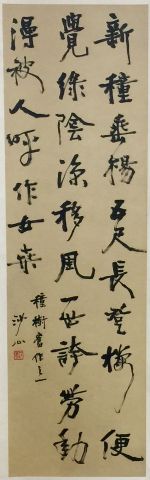 新種垂楊五尺長登樓便
覺綠陰涼移風一世誇勞動
漫被人呼作女桑
種樹作之一